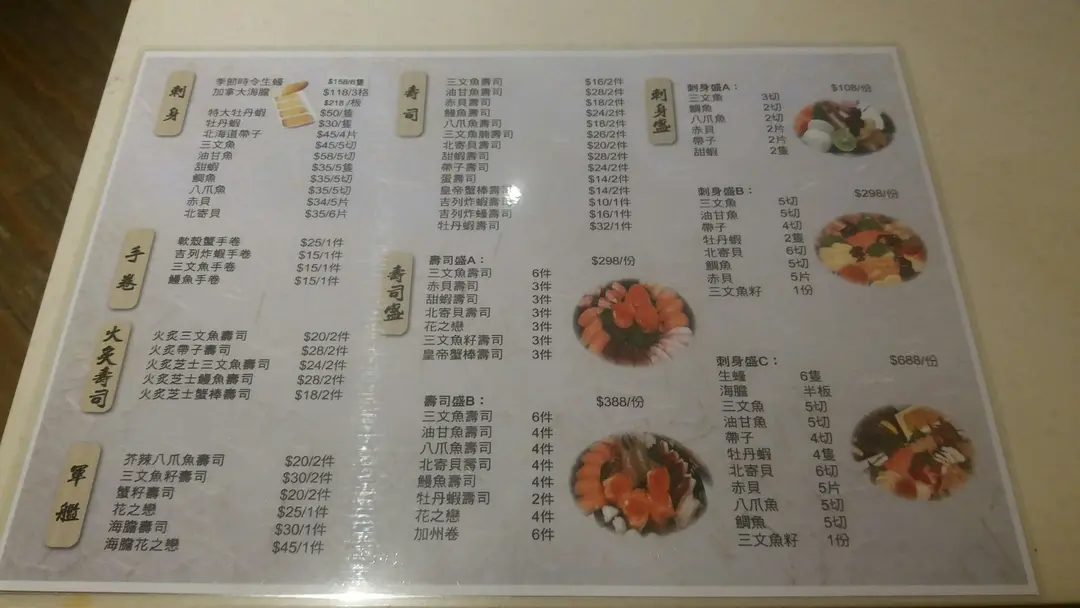 刺身
季節時令生蠔 $158/6隻
加拿大海膽 $118/3格
$218/板
特大牡丹蝦 $50/隻
牡丹蝦 $30/隻
北海道帶子 $45/4片
三文魚 $45/5切
油甘魚 $58/5切
甜蝦 $35/5隻
鯛魚 $35/5切
八爪魚 $35/5切
赤貝 $34/5片
北寄貝 $35/6片
手卷
軟殼蟹手卷 $25/1件
吉列炸蝦手卷 $15/1件
三文魚手卷 $15/1件
鰻魚手卷 $15/1件
火炙壽司
火炙三文魚壽司 $20/2件
火炙帶子壽司 $28/2件
火炙芝士三文魚壽司 $24/2件
火炙芝士鰻魚壽司 $28/2件
火炙芝士蟹棒壽司 $18/2件
軍艦
芥辣八爪魚壽司 $20/2件
三文魚籽壽司 $30/2件
蟹籽壽司 $20/2件
花之戀 $25/1件
海膽壽司 $30/1件
海膽花之戀 $45/1件
壽司
三文魚壽司 $16/2件
油甘魚壽司 $28/2件
赤貝壽司 $18/2件
鰻魚壽司 $24/2件
八爪魚壽司 $18/2件
三文魚腩壽司 $26/2件
北寄貝壽司 $20/2件
甜蝦壽司 $28/2件
帶子壽司 $24/2件
蛋壽司 $14/2件
皇帝蟹棒壽司 $14/2件
吉列炸蝦壽司 $10/1件
吉列炸蠔壽司 $16/1件
牡丹蝦壽司 $32/1件
壽司盛
壽司盛A： $298/份
三文魚壽司 6件
赤貝壽司 3件
甜蝦壽司 3件
北寄貝壽司 3件
花之戀 3件
三文魚籽壽司 3件
皇帝蟹棒壽司 3件
壽司盛B： $388/份
三文魚壽司 6件
油甘魚壽司 4件
八爪魚壽司 4件
北寄貝壽司 4件
鰻魚壽司 4件
牡丹蝦壽司 2件
花之戀 4件
加州卷 6件
刺身盛
刺身盛A： $108/份
三文魚 3切
鯛魚 2切
八爪魚 2切
赤貝 2片
帶子 2片
甜蝦 2隻
刺身盛B： $298/份
三文魚 5切
油甘魚 5切
帶子 4切
牡丹蝦 2隻
北寄貝 6切
鯛魚 5切
赤貝 5片
三文魚籽 1份
刺身盛C： $688/份
生蠔 6隻
海膽 半板
三文魚 5切
油甘魚 5切
帶子 4切
牡丹蝦 4隻
北寄貝 6切
赤貝 5片
八爪魚 5切
鯛魚 5切
三文魚籽 1份